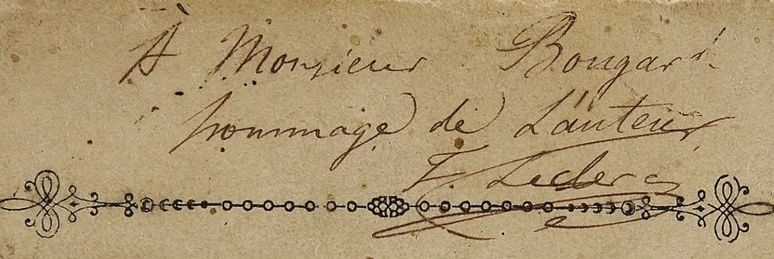 A Monsieur Bougard
hommage de L'auteur
F. Leclerc